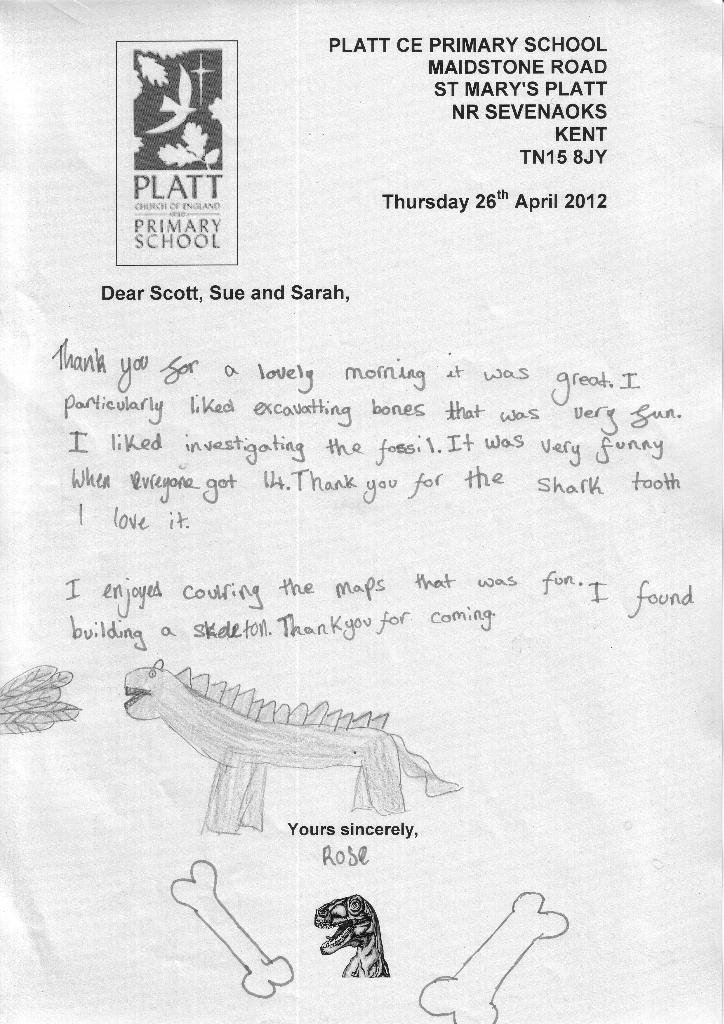 PLATT
CHURCH OF ENGLAND
PRIMARY
SCHOOL
PLATT CE PRIMARY SCHOOL
MAIDSTONE ROAD
ST MARY'S PLATT
NR SEVENAOKS
KENT
TN15 8JY
Thursday 26th April 2012
Dear Scott, Sue and Sarah,
Thank you for a lovely morning it was great. I
particularly liked excavatting bones that was very fun.
I liked investigating the fossil. It was very funny
when evreyone got 14. Thank you for the shark tooth
I love it.
I enjoyed coulring the maps that was fun. I found
building a skeleton. Thankyou for coming.
Yours sincerely,
Rose